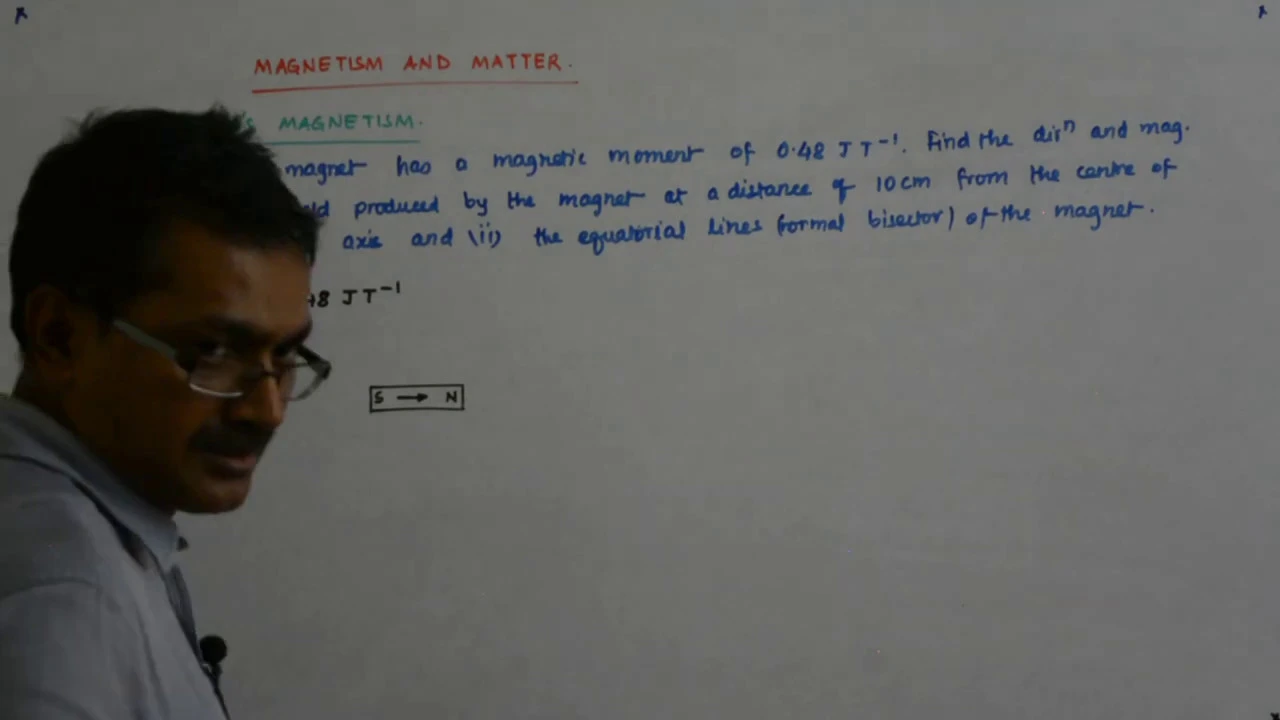 MAGNETISM AND MATTER.
MAGNETISM.
magnet has a magnetic moment of 0.48 J T⁻¹. Find the dirⁿ and mag.
produced by the magnet at a distance of 10 cm from the centre of
axis and (ii) the equatorial lines (normal bisector) of the magnet.
8 J T⁻¹
S → N